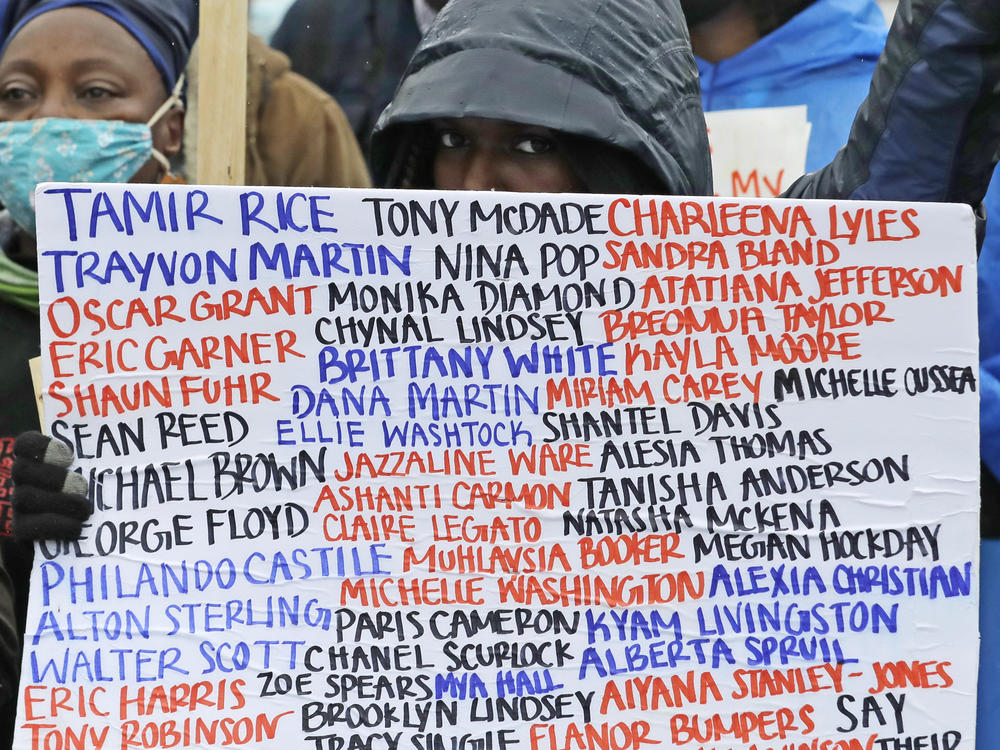 TAMIR RICE TONY McDADE CHARLEENA LYLES
TRAYVON MARTIN NINA POP SANDRA BLAND
OSCAR GRANT MONIKA DIAMOND ATATIANA JEFFERSON
ERIC GARNER CHYNAL LINDSEY BREONNA TAYLOR
SHAUN FUHR BRITTANY WHITE KAYLA MOORE
SEAN REED DANA MARTIN MIRIAM CAREY MICHELLE CUSSEA
MICHAEL BROWN ELLIE WASHTOCK SHANTEL DAVIS
GEORGE FLOYD JAZZALINE WARE ALESIA THOMAS
PHILANDO CASTILE ASHANTI CARMON TANISHA ANDERSON
ALTON STERLING CLAIRE LEGATO NATASHA MCKENA
WALTER SCOTT MUHLAYSIA BOOKER MEGAN HOCKDAY
ERIC HARRIS MICHELLE WASHINGTON ALEXIA CHRISTIAN
TONY ROBINSON PARIS CAMERON KYAM LIVINGSTON
CHANEL SCURLOCK ALBERTA SPRUIL
ZOE SPEARS MYA HALL AIYANA STANLEY-JONES
BROOKLYN LINDSEY ELANOR BUMPERS SAY
TRACY SINGLE THEIR
MY